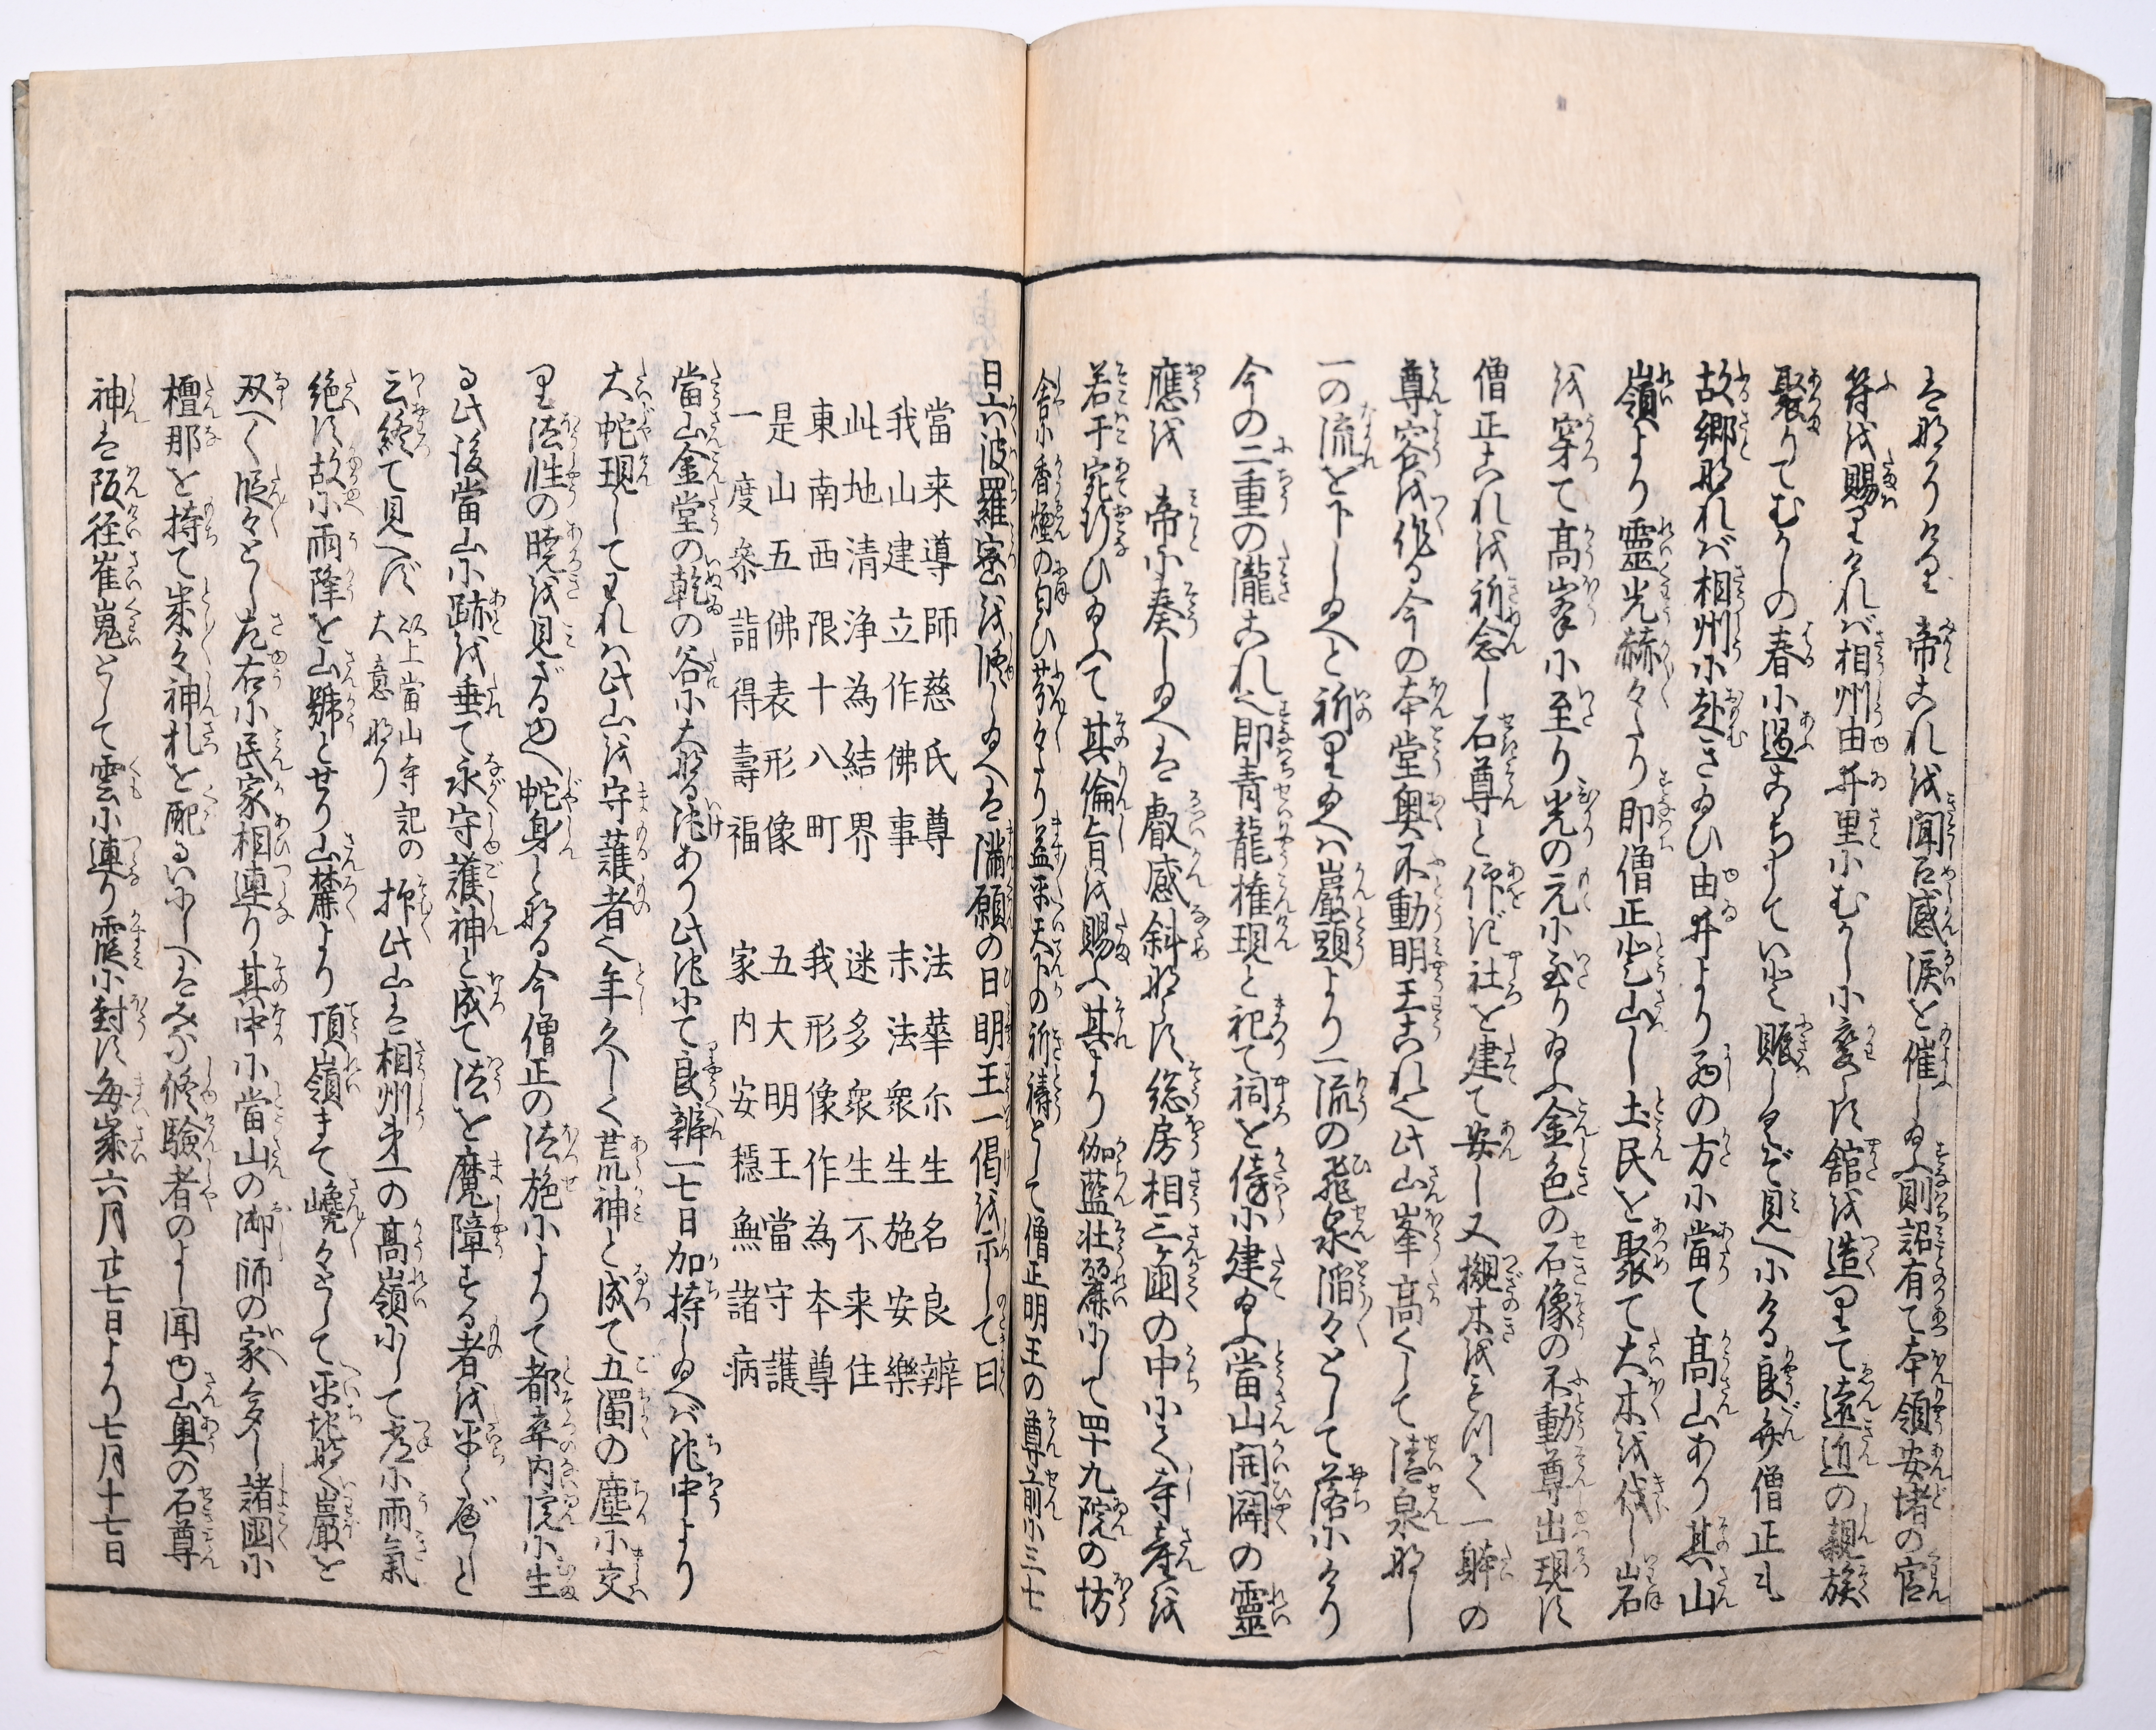 は那りける 帝これを聞召感涙を催し給ひ則詔有て本領安堵の官
符を賜りければ相州由井里にむかし小変らず舘を造りて遠近の親族
聚りてむかしの春に遇こゝちしていと賑しくぞ見へにける良弁僧正も
故郷なれば相州に赴き給ひ由井より西の方に當て高山あり其山
嶺より靈光赫々たり即僧正登山し土民を聚て大木を伐し岩
を穿て高峯に至り光の元に至り給ふ金色の石像の不動尊出現す
僧正これを祈念し石尊と仰ぎ社を建て安し又槻木をもつて一躰の
尊容を作る今の本堂奥不動明王これ也此山峯高くして清泉なし
一の流を下し給へと祈り給へば巖頭より一流の飛泉滔々として落にけり
今の二重の瀧これ也即青龍権現と祀て祠を傍に建給ふ當山開闢の靈
應を 帝に奏し給へは叡感斜ならず総房相三ヶ國の中にて寺産を
若干宛行ひ給ふて其倫旨を賜ふ其より伽藍壮麗にして四十九院の坊
舎に香煙の匂ひ芬々たり益平天下の祈祷として僧正明王の尊前に三七
日六波羅密を修し給へは満願の日明王一偈を示して曰
當来導師慈氏尊 法華尓生名良辨
我山建立作佛事 末法衆生施安樂
此地清浄為結界 迷多衆生不来住
東南西限十八町 我形像作為本尊
是山五佛表形像 五大明王當守護
一度叅詣得壽福 家内安穏無諸病
當山金堂の乾の谷に大なる池あり此池にて良辨一七日加持し給へば池中より
大蛇現してわれハ此山を守護者也年久しく荒神と成て五濁の塵に交
り法性の暁を見ざるゆへ蛇身となる今僧正の法施によりて都卒内院に生
る此後當山に跡を垂て永守護神と成て法を魔障する者を平くべしと
云終て見へず 以上當山寺記の大意なり 抑此山は相州第一の高嶺にして常に雨氣
絶ず故に雨降を山號とせり山麓より頂嶺まて巉々として平地なく巌を
双へく 段々とし左右に民家相連り其中に當山の御師の家多し諸國に
檀那を持て歳々神札を配るいにしへはみな修験者のよし聞ゆ山奥の石尊
神は阪径崔嵬として雲に連り霞に對す毎歳六月廿七日より七月十七日